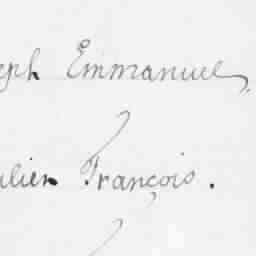 eph Emmanuel,
ulien François.